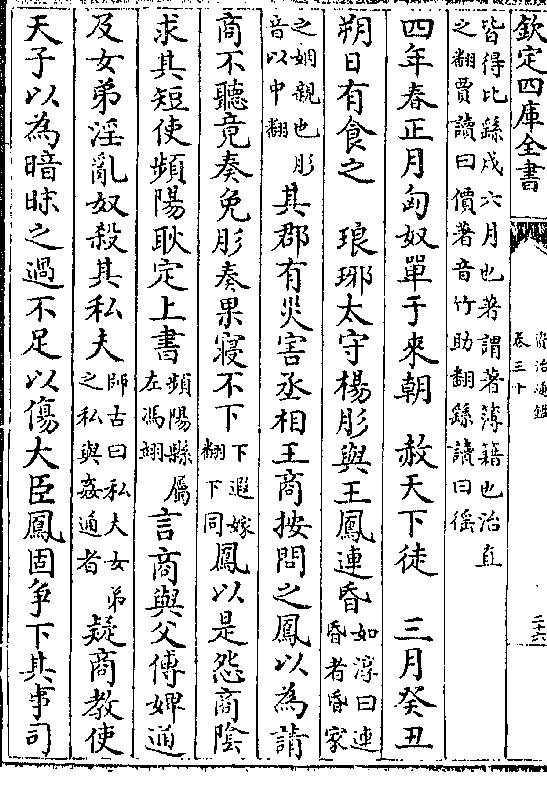 欽定四庫全書
資治通鑑
卷三十
二十六
皆得比繇戍六月也著謂著簿籍也治直
之翻賈讀曰價著音竹助翻繇讀曰徭
四年春正月匈奴單于來朝 赦天下徒 三月癸丑
朔日有食之 琅琊太守楊肜與王鳳連昏如淳曰連昏者昏家
之姻親也肜音以中翻其郡有災害丞相王商按問之鳳以為請
商不聽竟奏免肜奏果寢不下下遐嫁翻下同鳳以是怨商陰
求其短使頻陽耿定上書頻陽縣屬左馮翊言商與父傅婢通
及女弟淫亂奴殺其私夫師古曰私夫女弟之私與姦通者疑商教使
天子以為暗昧之過不足以傷大臣鳳固爭下其事司